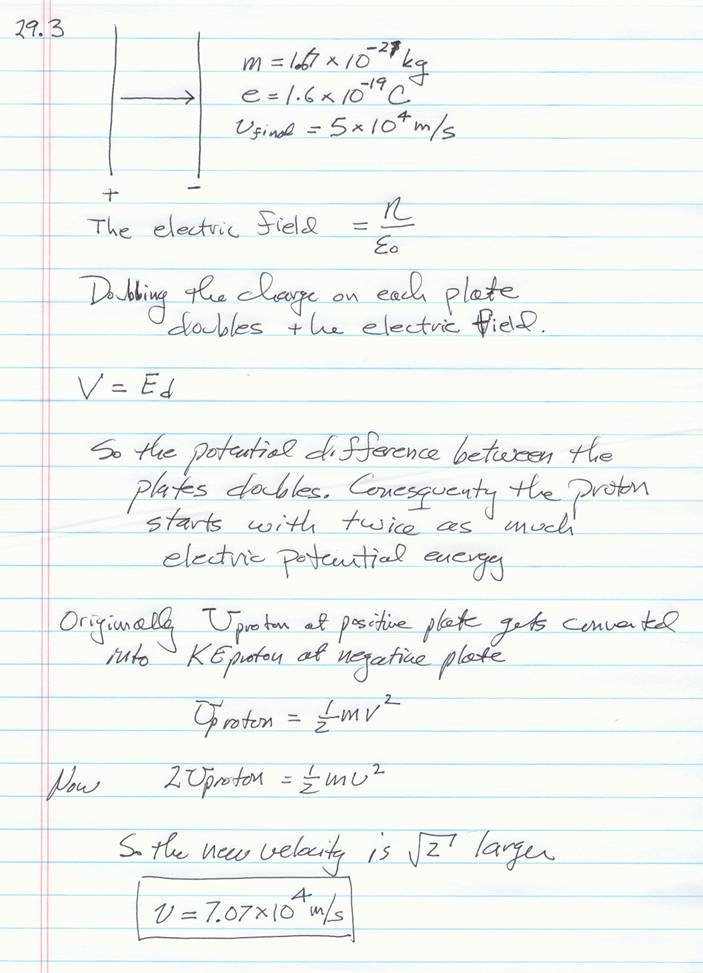 29.3
m = 1.67 × 10^-27 kg
e = 1.6 × 10^-19 C
v_final = 5 × 10^4 m/s
+ -
The electric field = η/ε₀
Doubbing the charge on each plate
doubles the electric field.
V = Ed
So the potential difference between the
plates doubles. Conesquenty the proton
starts with twice as much
electric potential energy
Originally U_proton at positive plate gets converted
into KE_proton at negative plate
U_proton = ½mv²
Now 2U_proton = ½mv²
So the new velocity is √2 larger
v = 7.07×10^4 m/s